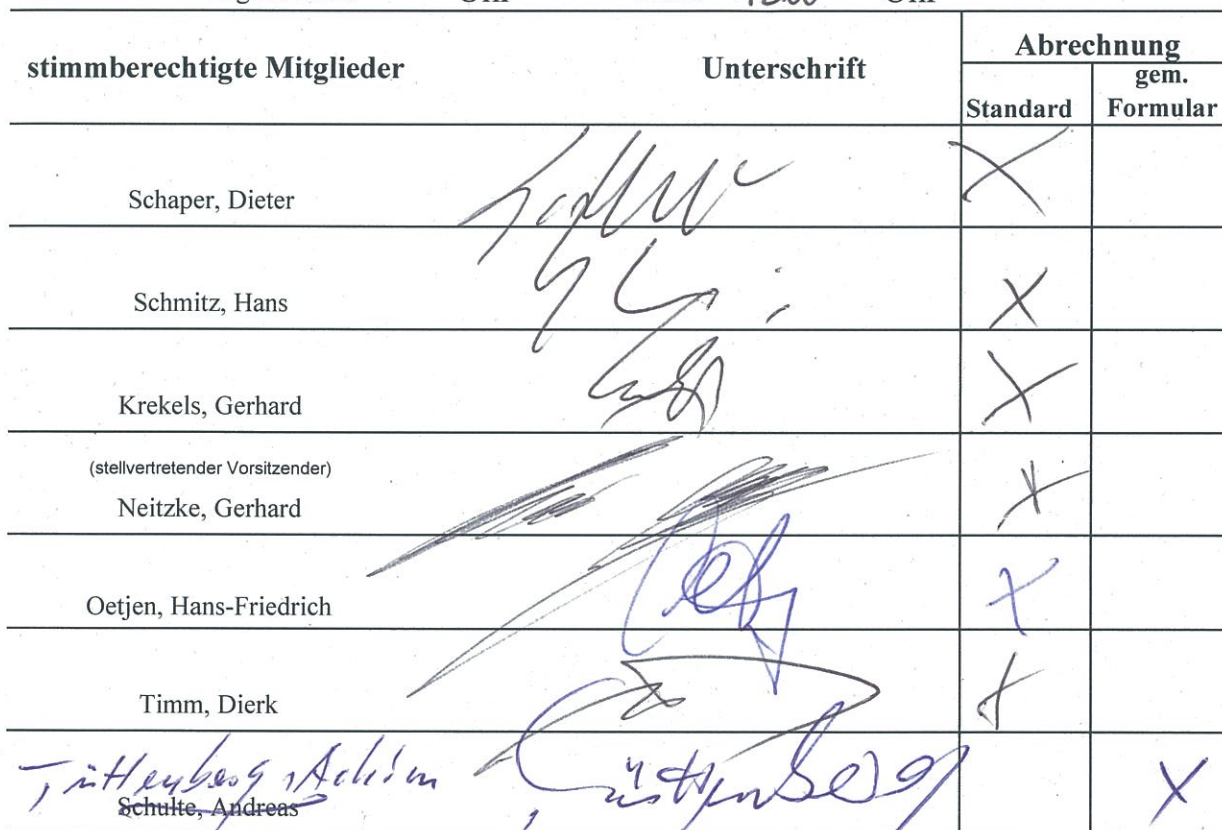 Uhr 13.00 Uhr
stimmberechtigte Mitglieder Unterschrift Abrechnung
Standard gem. Formular
Schaper, Dieter X
Schmitz, Hans X
Krekels, Gerhard X
(stellvertretender Vorsitzender)
Neitzke, Gerhard X
Oetjen, Hans-Friedrich X
Timm, Dierk X
Tüttenberg, Achim Tüttenberg X
Schulte, Andreas